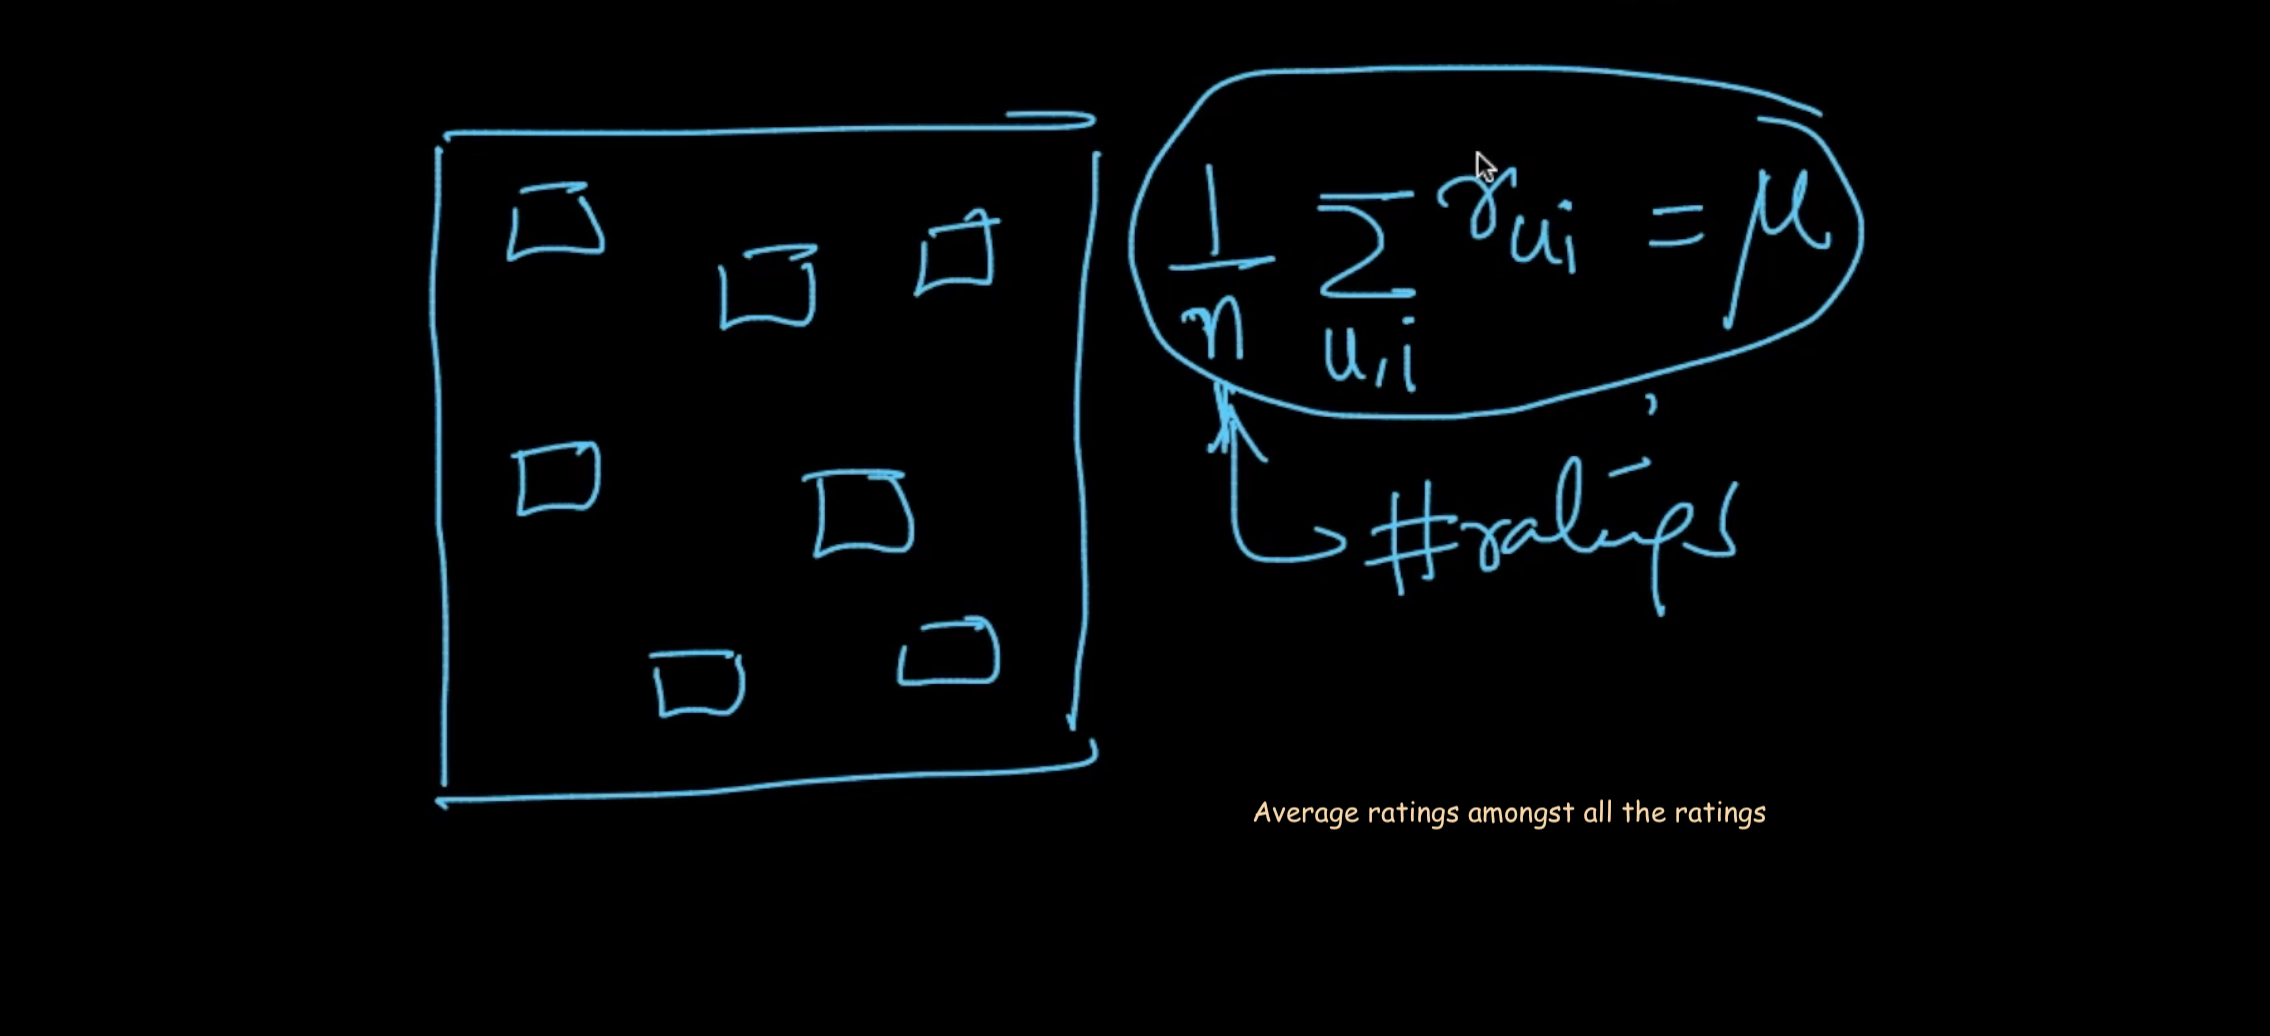 1/n Σ u,i r_ui = μ
#ratings
Average ratings amongst all the ratings